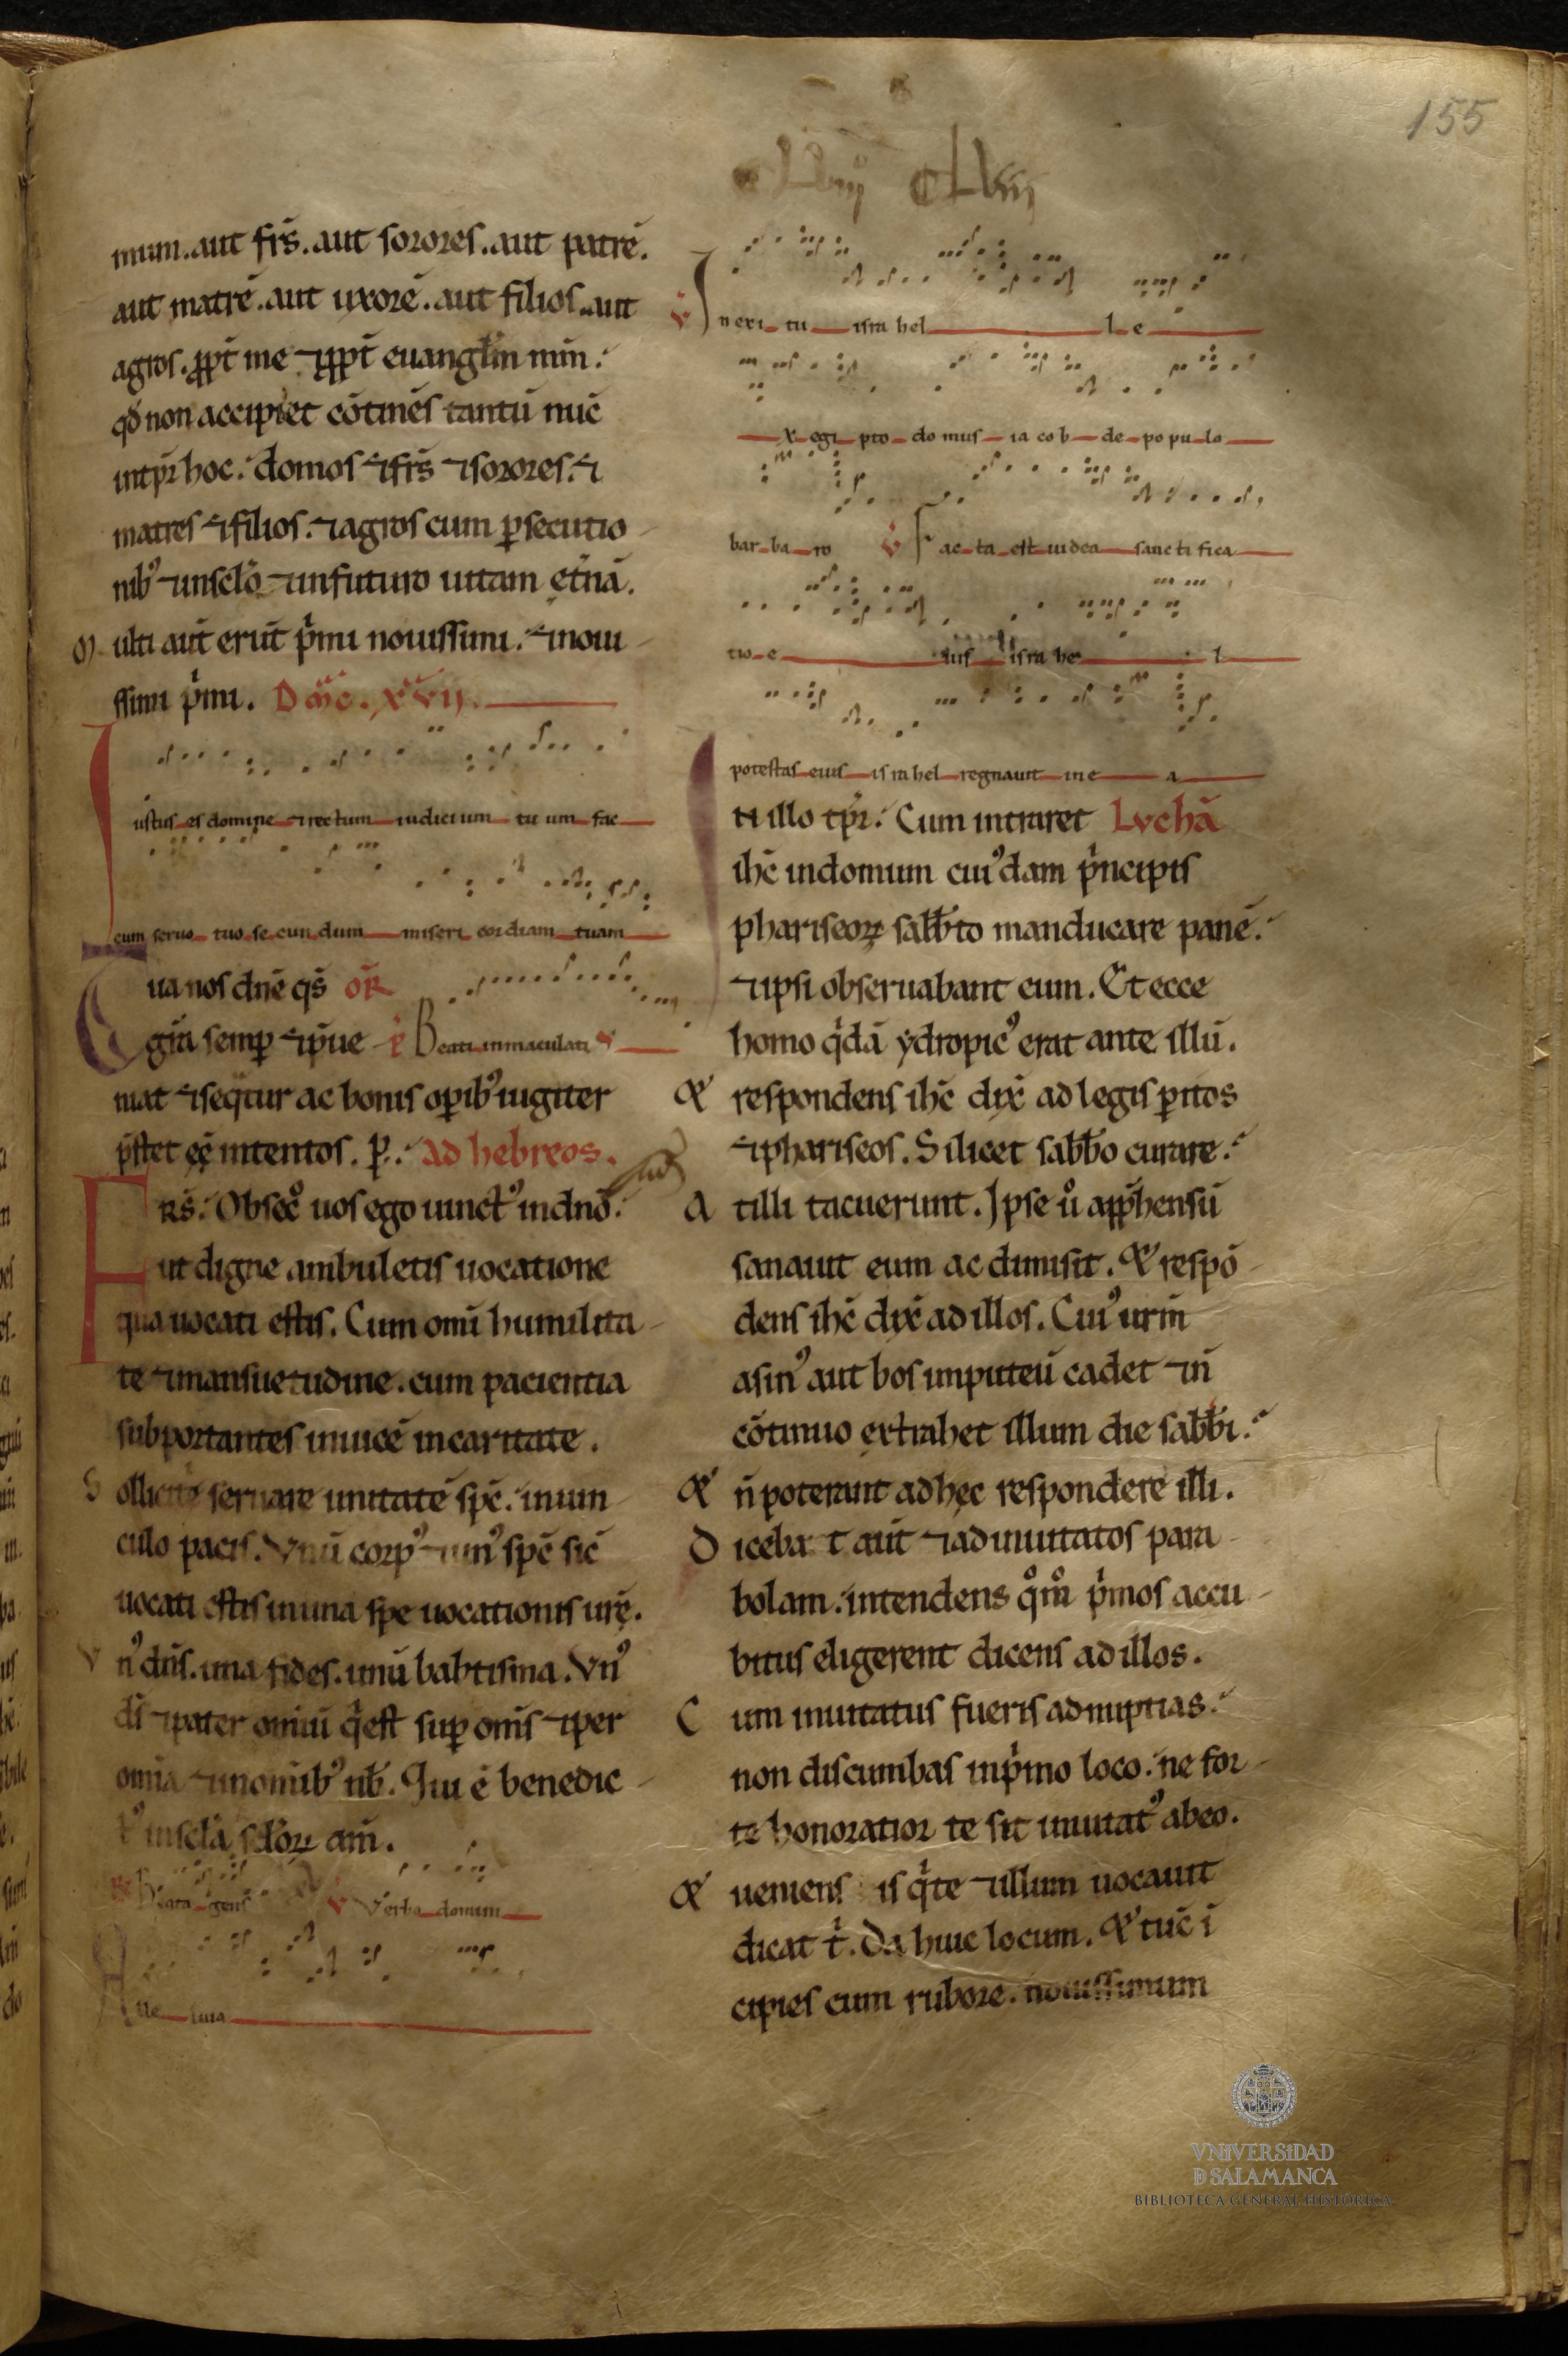 155
clviii
mum. aut fr̄s. aut sorores. aut patrē.
aut matrē. aut uxorē. aut filios. aut
agros. ꝓpt̄ me ⁊ ꝓpt̄ euangłm mm̄.
qđ non accipiet cōtinēs tantū nūc
intp̄r hoc. domos ⁊ fr̄s ⁊ sorores. ⁊
matres ⁊ filios. ⁊ agros cum ꝑsecutio
nibꝰ ⁊ in sc̄lō ⁊ in futuro uitam ęt̄nā.
M ulti aūt erūt p̄mi nouissimi. ⁊ noui
ssimi p̄mi. Dm̄c. XVII.
Iustus es domine ⁊ rectum iudicium tuum fac
cum seruo tuo secundum misericordiam tuam
Tua nos dn̄e qs̄ or̄
gr̄a semꝑ ⁊ p̄ue p̄ Beati inmaculati
niat ⁊ seqt̄ur ac bonis oꝑibꝰ iugiter
p̄stet eē intentos. ꝑ. ad hebreos.
Frs̄. Obsecͦ uos ego uinctꝰ in dn̄o.
ut digne ambuletis uocatione
qua uocati estis. Cum omī humilita
te ⁊ mansuetudine. cum pacientia
subportantes inuicē in caritate.
S olliciti seruare unitatē sp̄c. in uin
culo pacis. Vnū corpꝰ ⁊ unꝰ sp̄c sic̄
uocati estis in una spe uocationis ur̄ę.
V nꝰ dn̄s. una fides. unū babtisma. Vnꝰ
ds̄ ⁊ pater omiū q̄ est suꝑ om̄s ⁊ per
om̄ia ⁊ in om̄ibꝰ nb̄. Qui ē benedic
tꝰ in sc̄la sc̄loꝝ am̄.
Beata gens V Verba domini
Alleluia
V In exitu israhel e
x egipto domus iacob de populo
barbaro V Facta est iudea sanctifica
tio e ius israhel
potestas eius israhel regnauit in e a
In illo tp̄r. Cum intraret Lvchā
ihc̄ in domum cuiꝰdam p̄ncipis
phariseoꝝ sabb̄to manducare panē.
⁊ ipsi obseruabant eum. Et ecce
homo q̄dā ydropicꝰ erat ante illū.
Et respondens ihc̄ dix̄ ad legis ꝑitos
⁊ phariseos. Si licet sabb̄o curare.
A t illi tacuerunt. Ipse ū app̄hensū
sanauit eum ac dimisit. Et respō
dens ihc̄ dix̄ ad illos. Cuiꝰ ur̄m
asinꝰ aut bos in puteū cadet ⁊ n̄
cōtinuo extrahet illum die sabb̄i.
Et n̄ poterant ad hęc respondere illi.
D iceba t aūt ⁊ ad inuitatos para
bolam. intendens qͦmͦ p̄mos accu
bitus eligerent dicens ad illos.
C um inuitatus fueris ad nuptias.
non discumbas in p̄mo loco. ne for
te honoratior te sit inuitatꝰ ab eo.
Et ueniens is q̄ te ⁊ illum uocauit
dicat t̄. Da huic locum. Et tūc ī
cipies cum rubore. nouissimum
VNIVERSIDAD
D SALAMANCA
BIBLIOTECA GENERAL HISTÓRICA